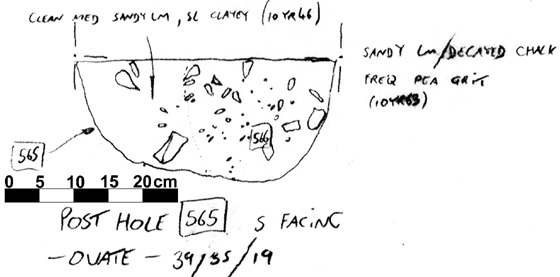 CLEAN MED SANDY LM, SL CLAYEY (10YR46)
SANDY LM/DECAYED CHALK
FREQ PEA GRIT
(10YR63)
566
565
0 5 10 15 20cm
POST HOLE 565 S FACING
- OVATE - 39/35/19